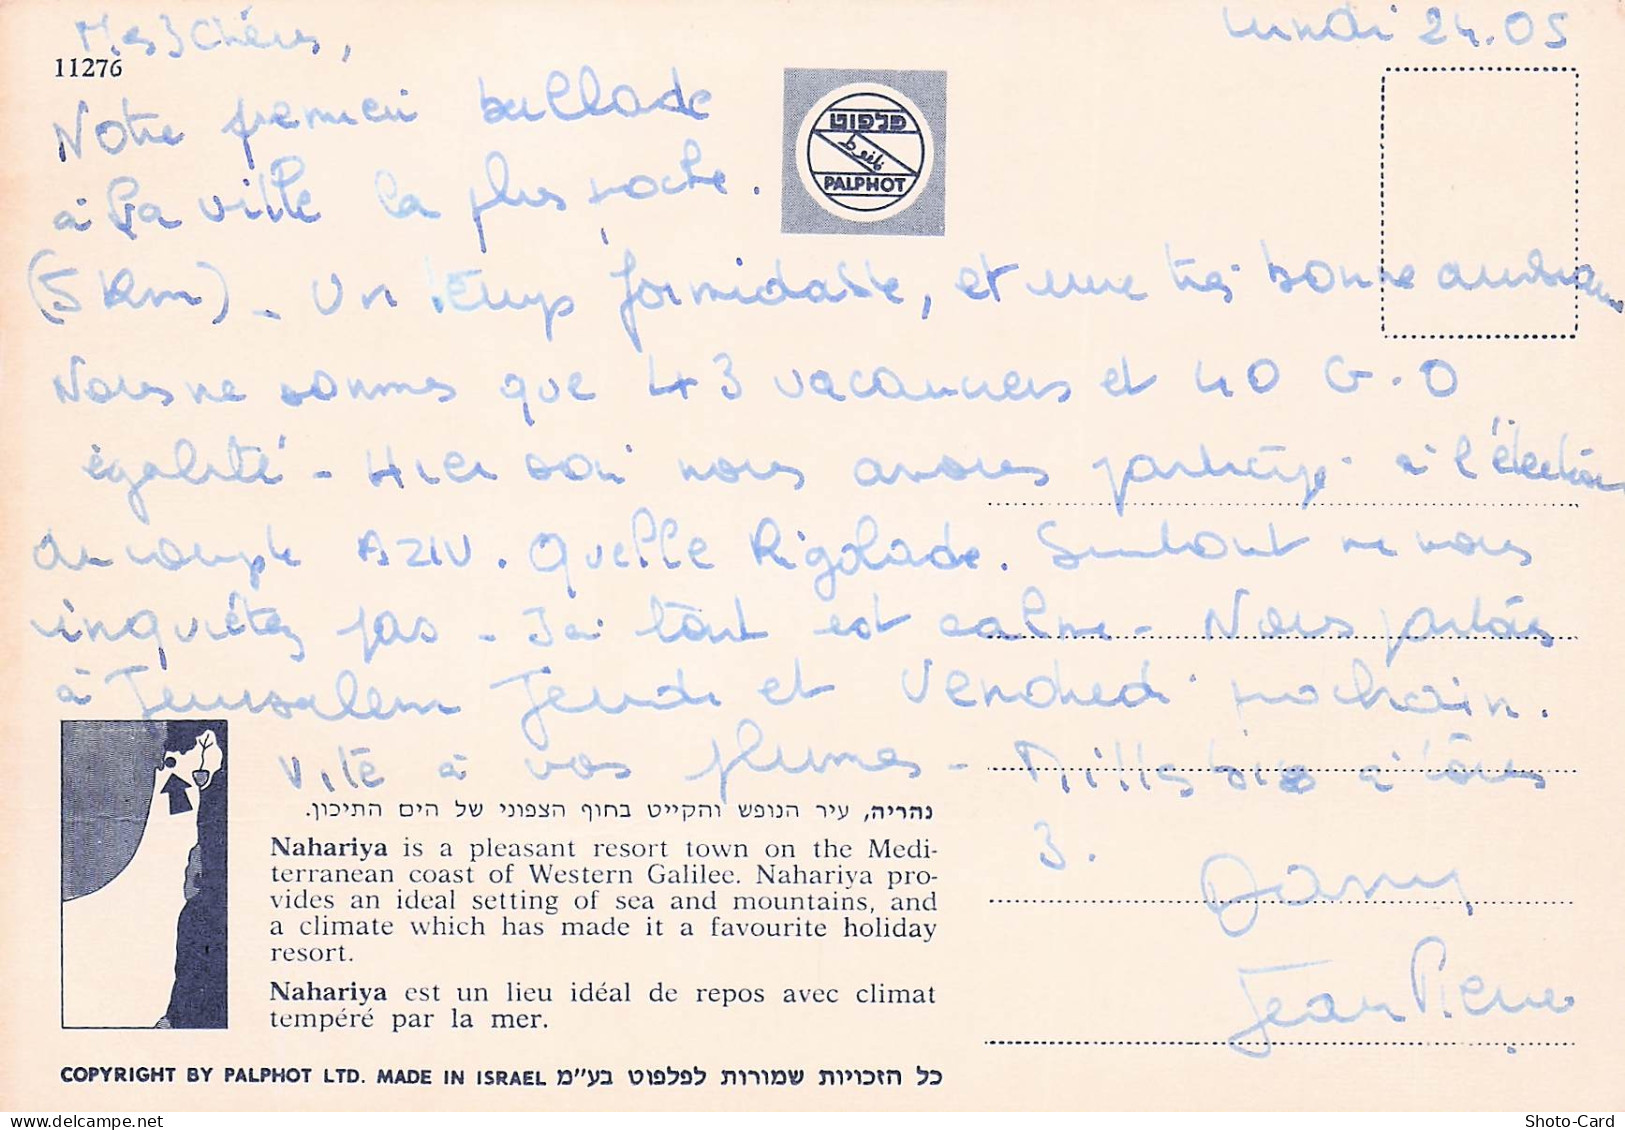 Mes 3 Chéris,
lundi 24.05
11276
Notre premier ballade
à la ville la plus proche.
(5 Km) - Un temps formidable, et une très bonne ambiance
Nous ne sommes que 43 vacanciers et 40 G.O
égalité - Hier soir nous avons participé à l'élection
du couple AZIV. Quelle Rigolade. Surtout ne vous
inquiétez pas - Ici tout est calme - Nous partons
à Jerusalem Jeudi et Vendredi prochain.
Vite à vos plumes - Mille bises à toutes
3.
Dany
Jean Pierre
פלפוט
PALPHOT
נהריה, עיר הנופש והקייט בחוף הצפוני של הים התיכון.
Nahariya is a pleasant resort town on the Medi-
terranean coast of Western Galilee. Nahariya pro-
vides an ideal setting of sea and mountains, and
a climate which has made it a favourite holiday
resort.
Nahariya est un lieu idéal de repos avec climat
tempéré par la mer.
COPYRIGHT BY PALPHOT LTD. MADE IN ISRAEL כל הזכויות שמורות לפלפוט בע"מ
Shoto-Card